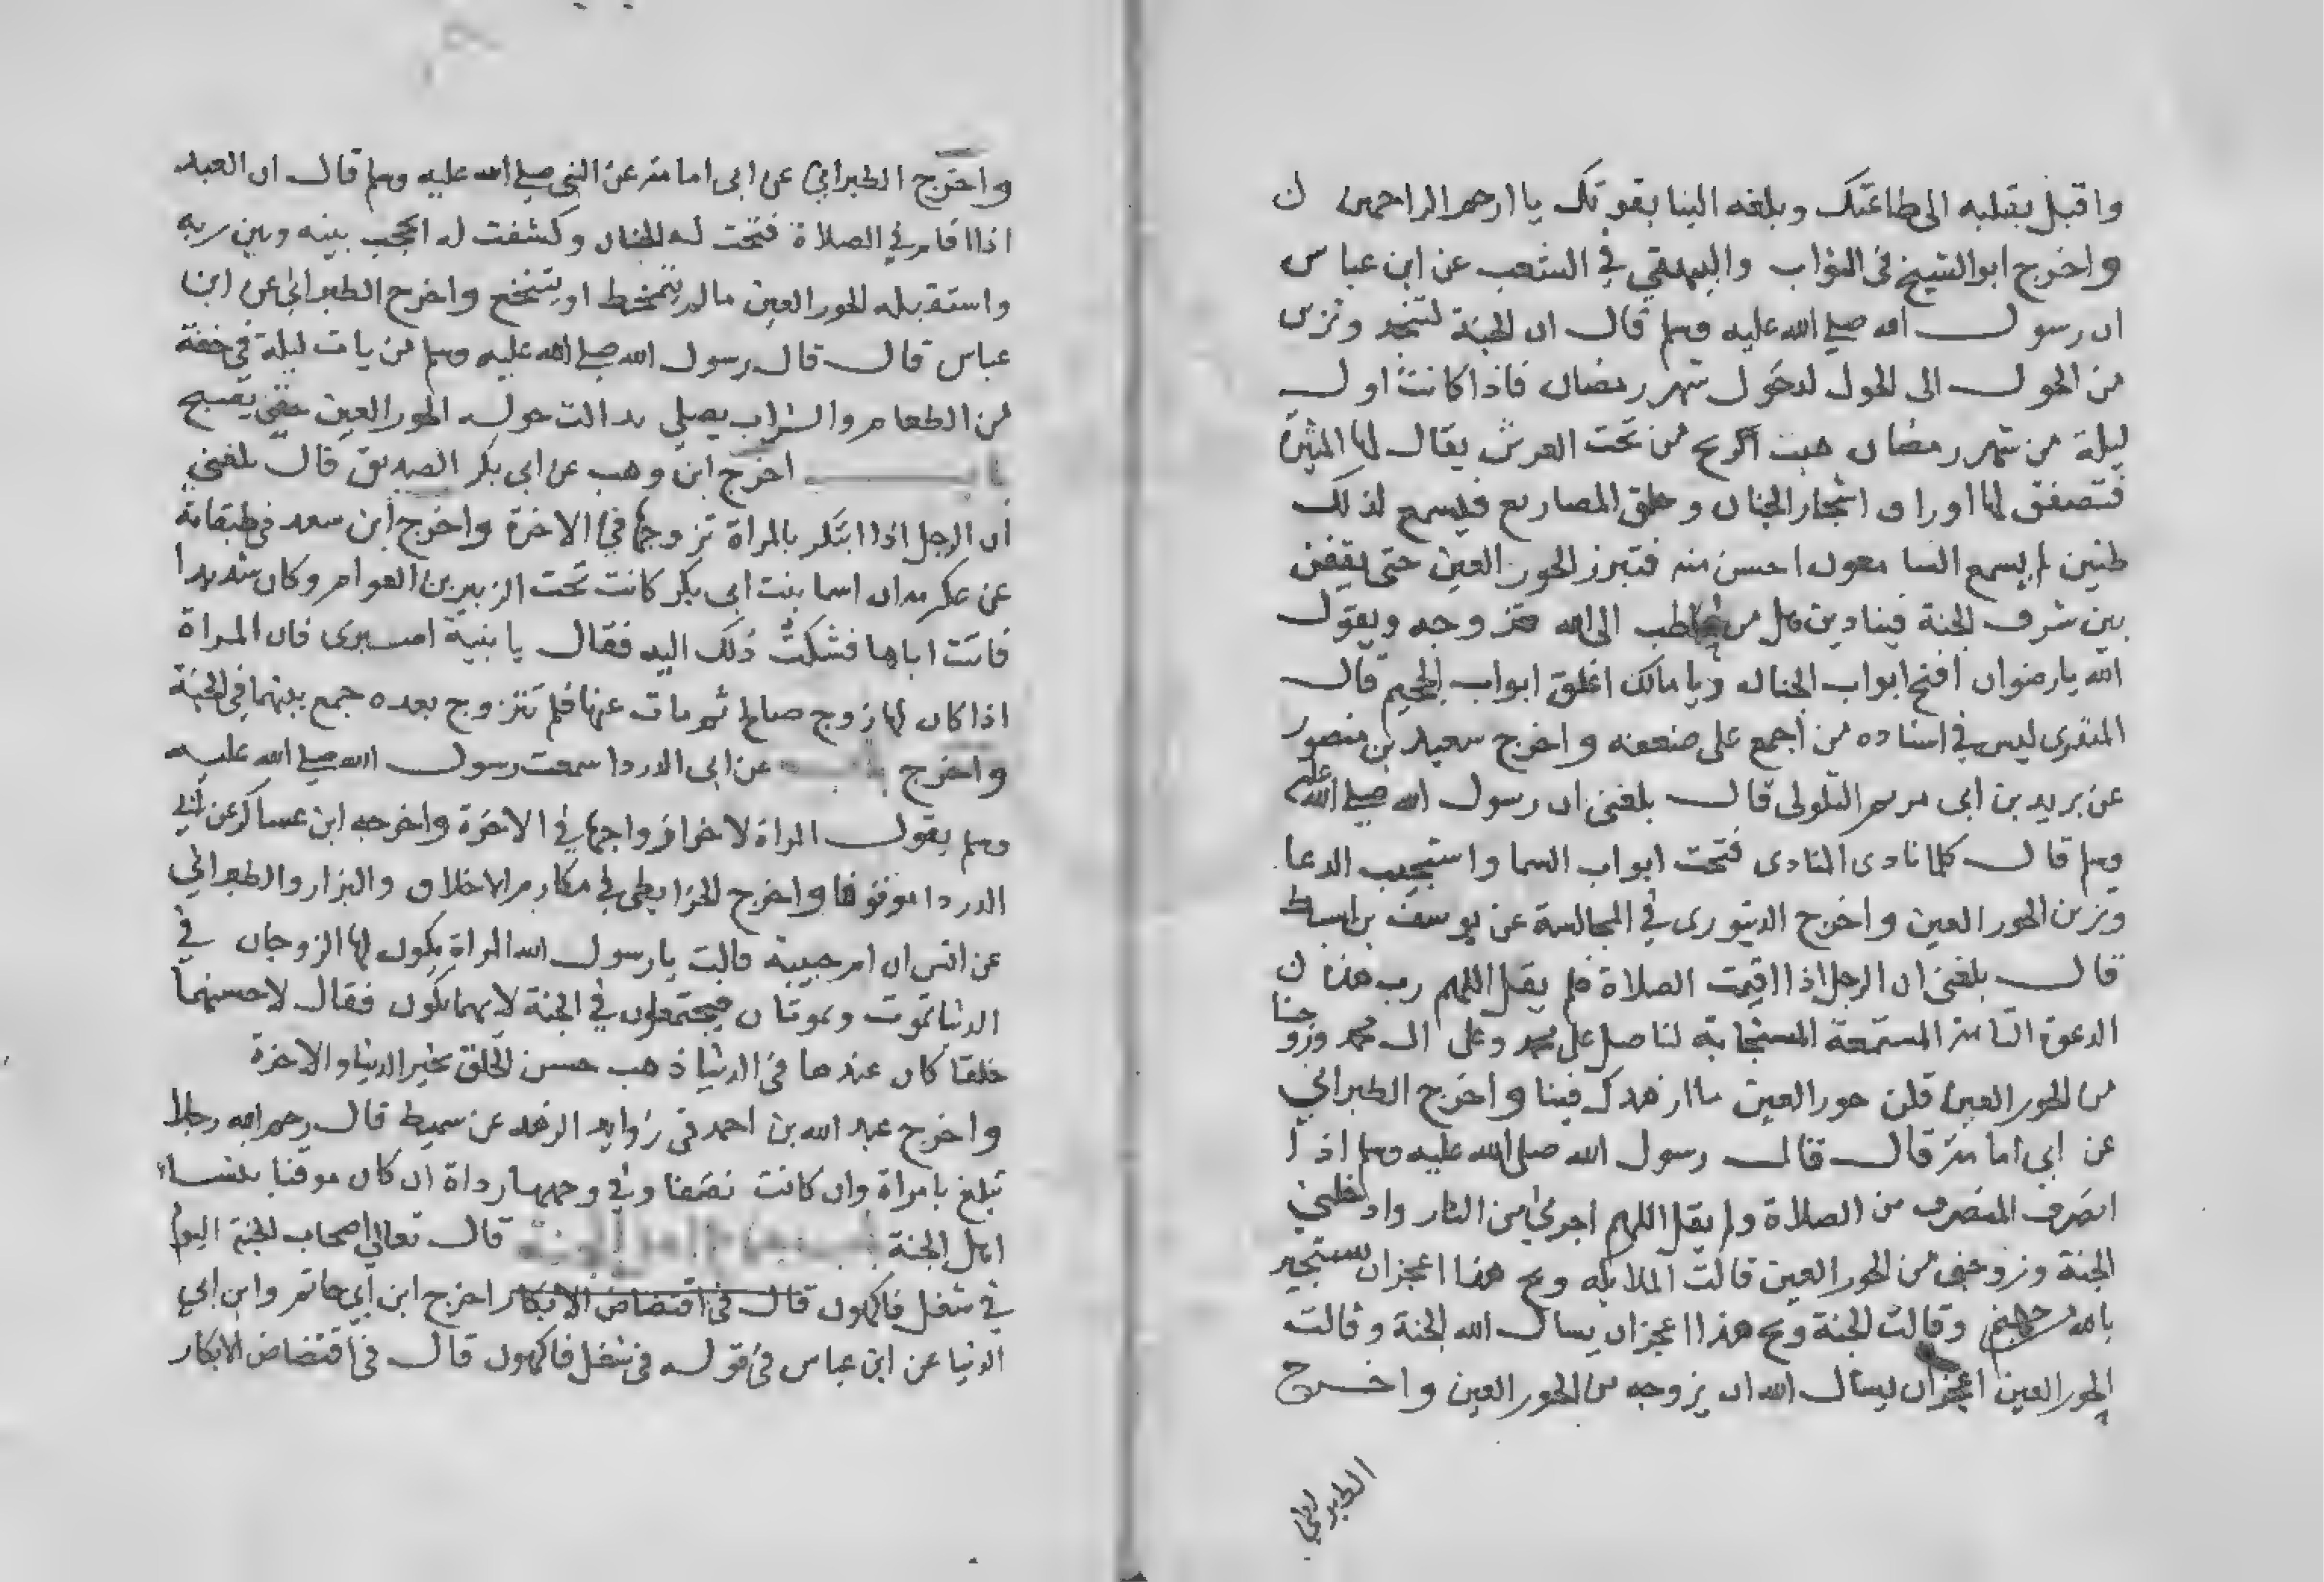 واقبل بقلبه الى طاعتك وبلغه الينا بقوتك يا ارحم الراحمين
واخرج ابو الشيخ في الثواب والبيهقي في الشعب عن ابن عباس
ان رسول الله صلى الله عليه وسلم قال ان الجنة لتنجد وتزين
من الحول الى الحول لدخول شهر رمضان فاذا كانت اول
ليلة من شهر رمضان هبت الريح من تحت العرش يقال لها المثيرة
فتصفق لها اوراق اشجار الجنان وحلق المصاريع فيسمع لذلك
طنين لم يسمع السامعون احسن منه فتبرز الحور العين حتى يقفن
بين شرف الجنة فينادين هل من خاطب الى الله فتزوجه ويقول
الله يا رضوان افتح ابواب الجنان ويا مالك اغلق ابواب الجحيم قال
المنذرى ليس في اسناده من اجمع على ضعفه واخرج سعيد بن منصور
عن بريد بن ابى مريم السلولى قال بلغنى ان رسول الله صلى الله عليه
وسلم قال كلما نادى المنادى فتحت ابواب السما واستجيب الدعا
وتزين الحور العين واخرج الدينورى في المجالسة عن يوسف بن اسباط
قال بلغنى ان الرجل اذا اقيمت الصلاة فلم يقل اللهم رب هذه
الدعوة التامة المستمعة المستجابة لنا صل على محمد وعلى ال محمد وزوجنا
من الحور العين قلن حور العين ما ازهدك فينا واخرج الطبرانى
عن ابى امامة قال قال رسول الله صلى الله عليه وسلم اذا
انصرف المنصرف من الصلاة ولم يقل اللهم اجرنى من النار وادخلنى
الجنة وزوجنى من الحور العين قالت الملايكه ويح هذا اعجز ان يستجير
بالله من جهنم وقالت الجنة ويح هذا اعجز ان يسال الله الجنة وقالت
الحور العين اعجز ان يسال الله ان يزوجه من الحور العين واخرج
الطبرانى
واخرج الطبرانى عن ابى امامة عن النبى صلى الله عليه وسلم قال ان العبد
اذا قام في الصلاة فتحت له الجنان وكشفت له الحجب بينه وبين ربه
واستقبله الحور العين مالم يتمخط او يتنخع واخرج الطبرانى عن ابن
عباس قال قال رسول الله صلى الله عليه وسلم من بات ليلة في خفة
من الطعام والشراب يصلى تدالت حوله الحور العين حتى يصبح
باب اخرج ابن وهب عن ابى بكر الصديق قال بلغنى
ان الرجل اذا ابتكر بالمراة تزوجها في الاخرة واخرج ابن سعد في طبقاته
عن عكرمه ان اسما بنت ابى بكر كانت تحت الزبير بن العوام وكان شديدا
فاتت اباها فشكت ذلك اليه فقال يا بنية اصبرى فان المراة
اذا كان لها زوج صالح ثم مات عنها فلم تتزوج بعده جمع بينهما في الجنة
واخرج عن ابى الدردا سمعت رسول الله صلى الله عليه
وسلم يقول المراة لاخر ازواجها في الاخرة واخرجه ابن عساكر عن ابى
الدردا موقوفا واخرج الخرايطى في مكارم الاخلاق والبزار والطبرانى
عن انس ان ام حبيبة قالت يا رسول الله المراة يكون لها الزوجان في
الدنيا تموت ويموتان فيجتمعون في الجنة لايهما تكون فقال لاحسنهما
خلقا كان عندها في الدنيا ذهب حسن الخلق بخير الدنيا والاخرة
واخرج عبد الله بن احمد في زوايد الزهد عن سميط قال رحم الله رجلا
تبلغ بامراة وان كانت نصفا وفي وجهها رداة ان كان موقنا بنساء
اهل الجنة قال تعالى اصحاب الجنة اليوم
في شغل فاكهون قال في افتضاض الابكار اخرج ابن ابى حاتم وابن ابى
الدنيا عن ابن عباس في قوله في شغل فاكهون قال في افتضاض الابكار